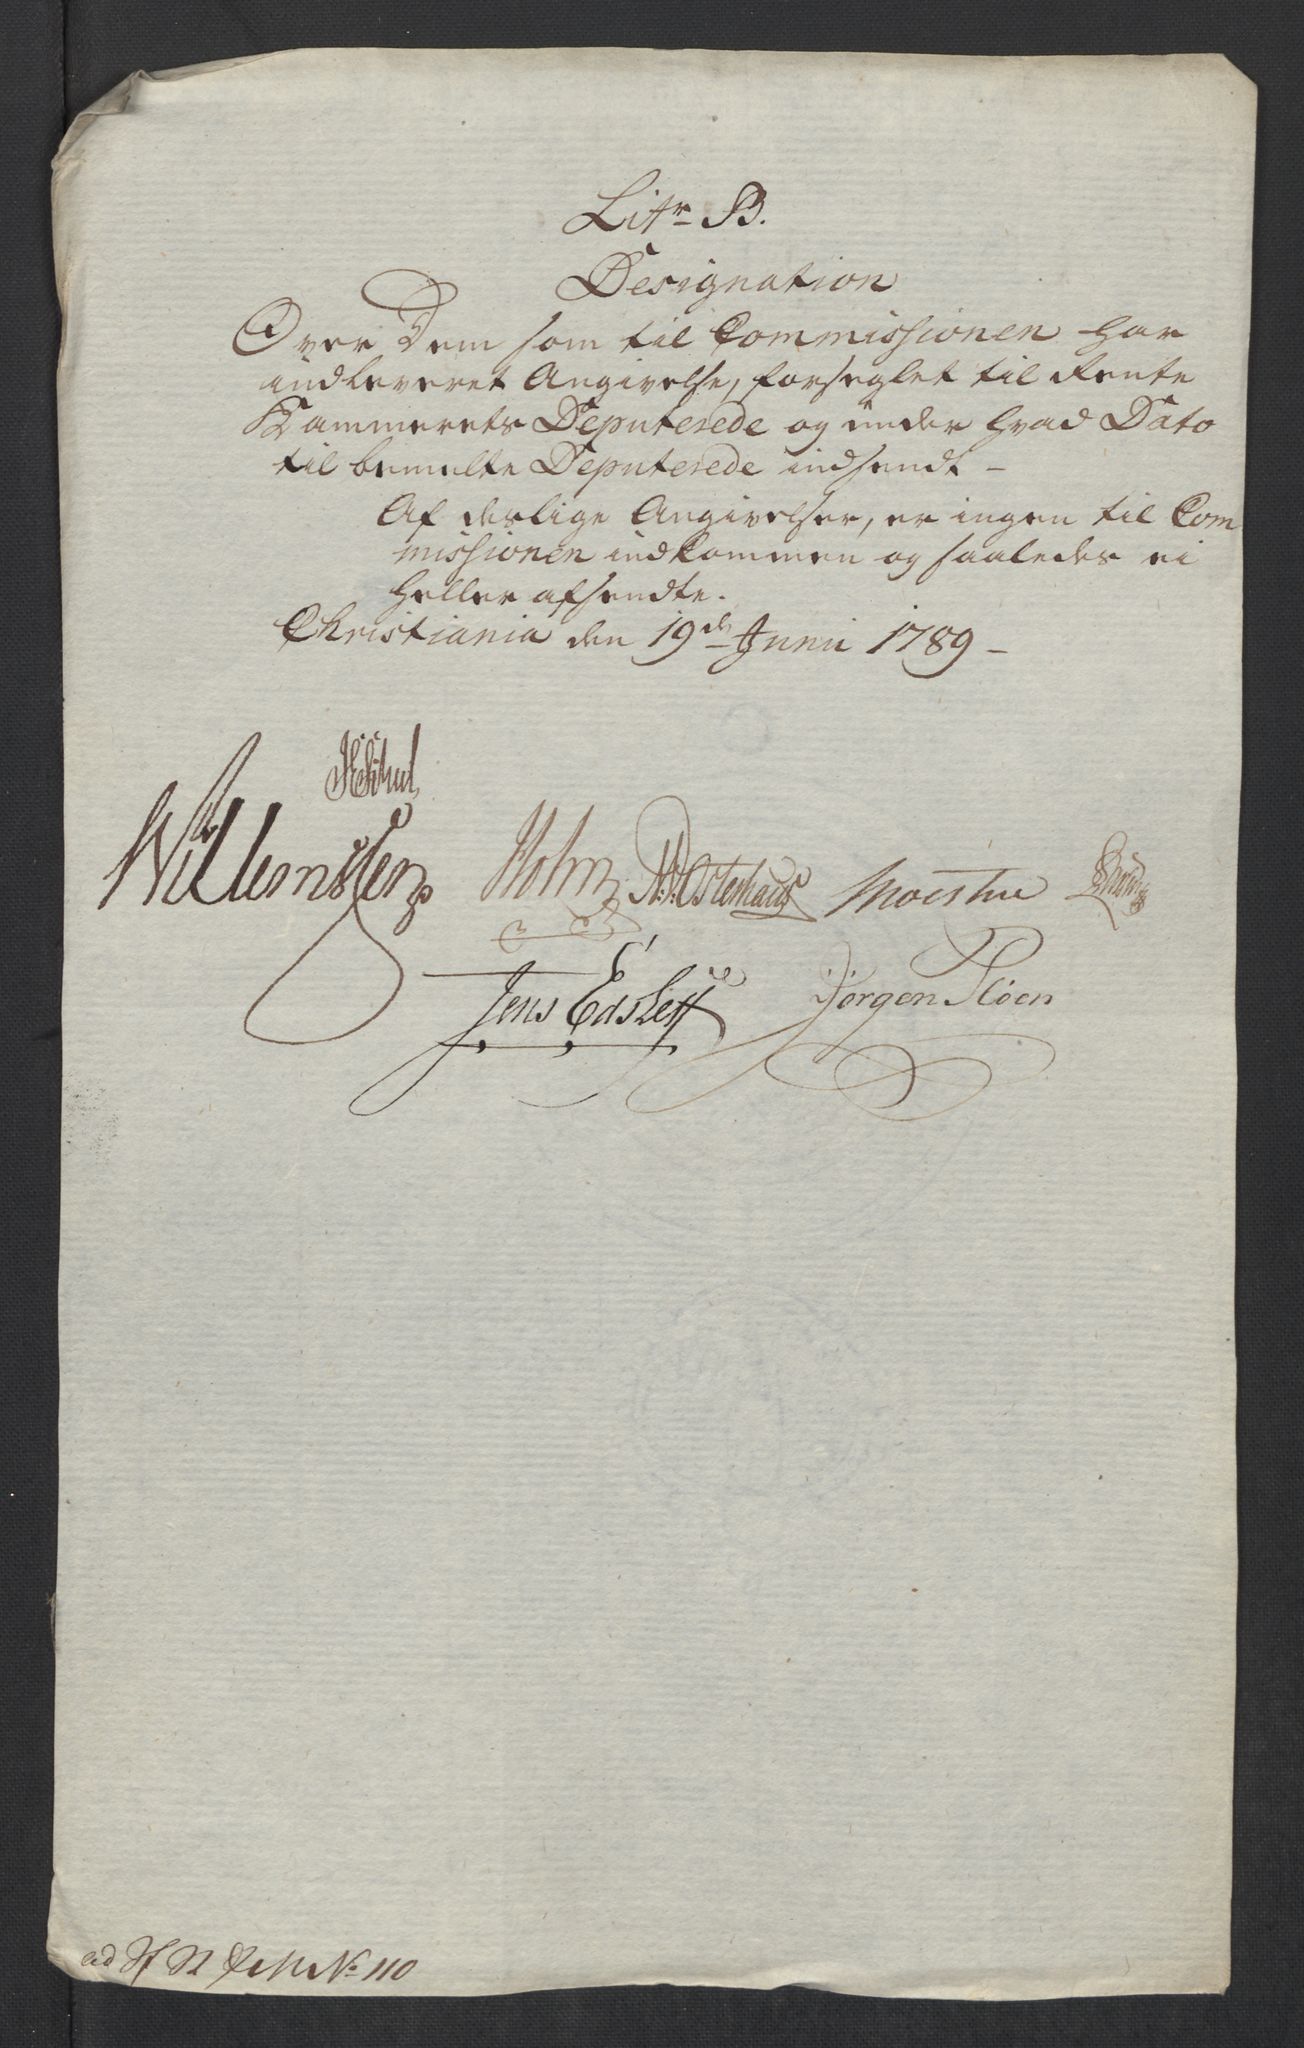 Litr B.
Designation
Over Dem som til Commissionen har
indleveret Angivelse, forseglet til Rente
Kammerets Deputerede og under hvad Dato
til bemelte Deputerede indsendt –
Af deslige Angivelser, er ingen til Com
missionen indkommen og saaledes ei
heller afsendte.
Christiania den 19de Junii 1789 –
Willemssen Holm N: Osterhaus Moestue
Jens Edsleff Jørgen Pløen
ad No 110